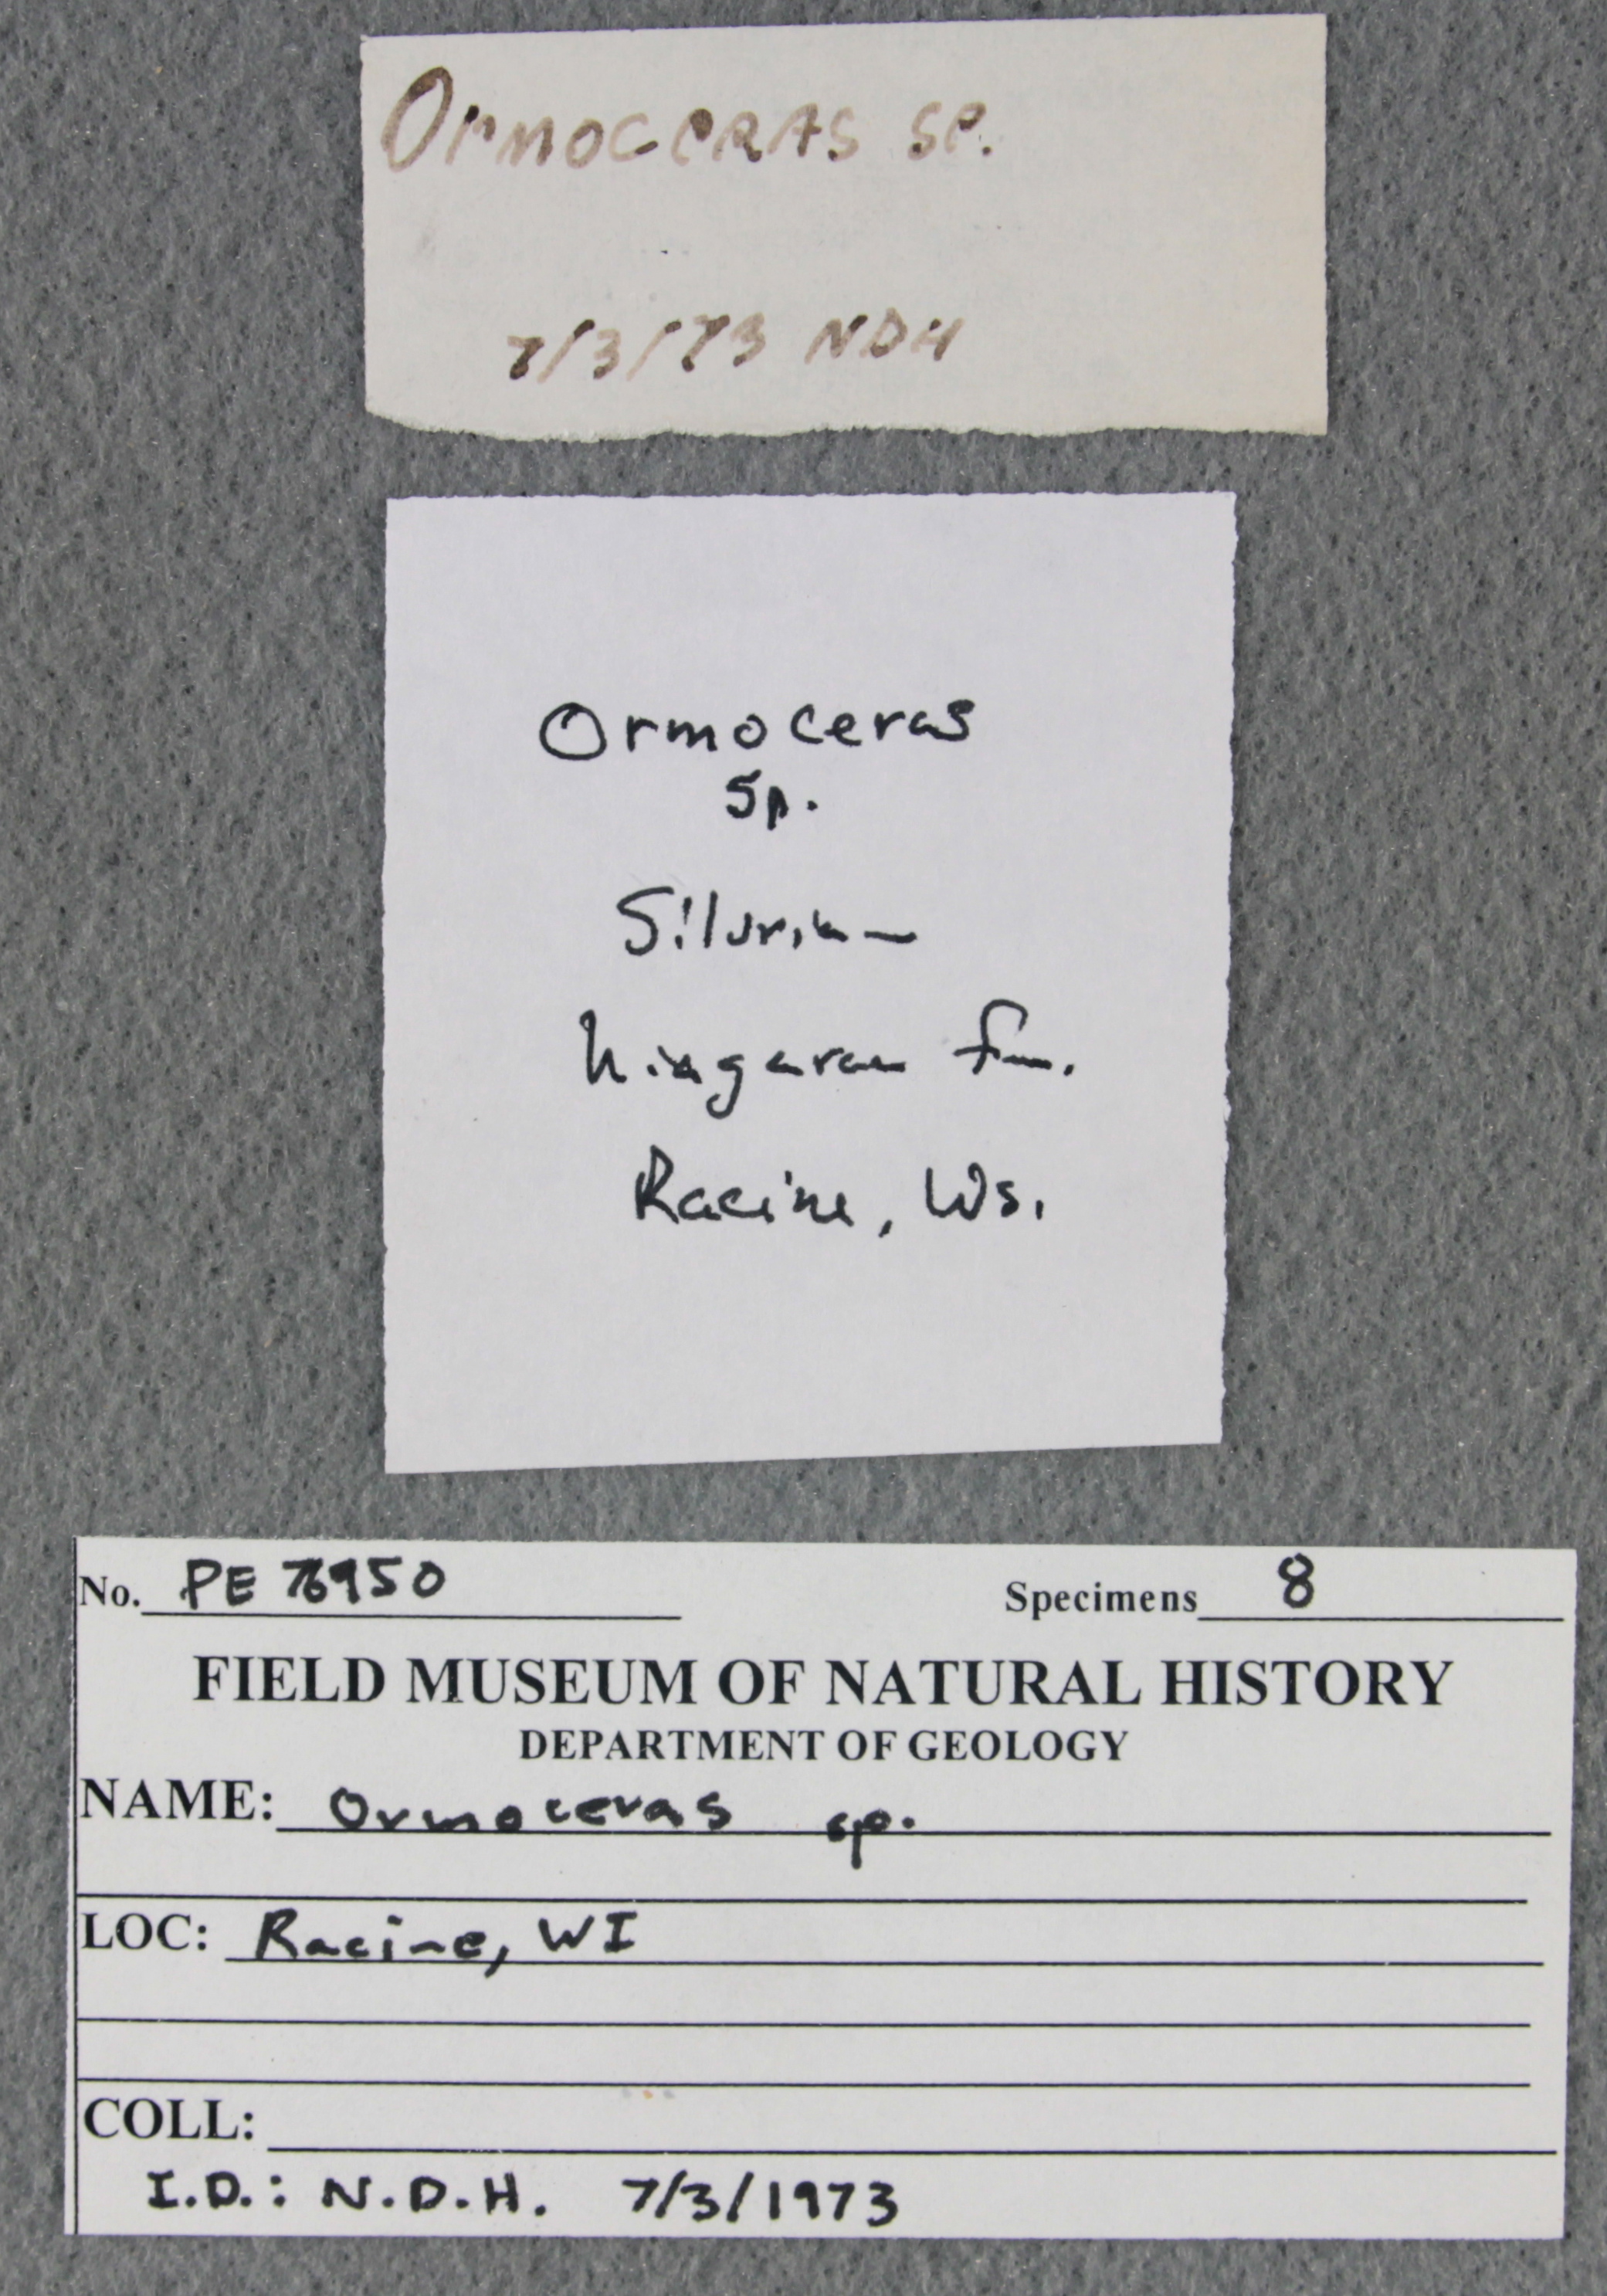 Ormoceras sp.
7/3/73 NDH
Ormoceras
sp.
Silurian
Niagaran fm.
Racine, Ws.
No. PE 76950 Specimens 8
FIELD MUSEUM OF NATURAL HISTORY
DEPARTMENT OF GEOLOGY
NAME: Ormoceras sp.
LOC: Racine, WI
COLL:
I.D.: N.D.H. 7/3/1973